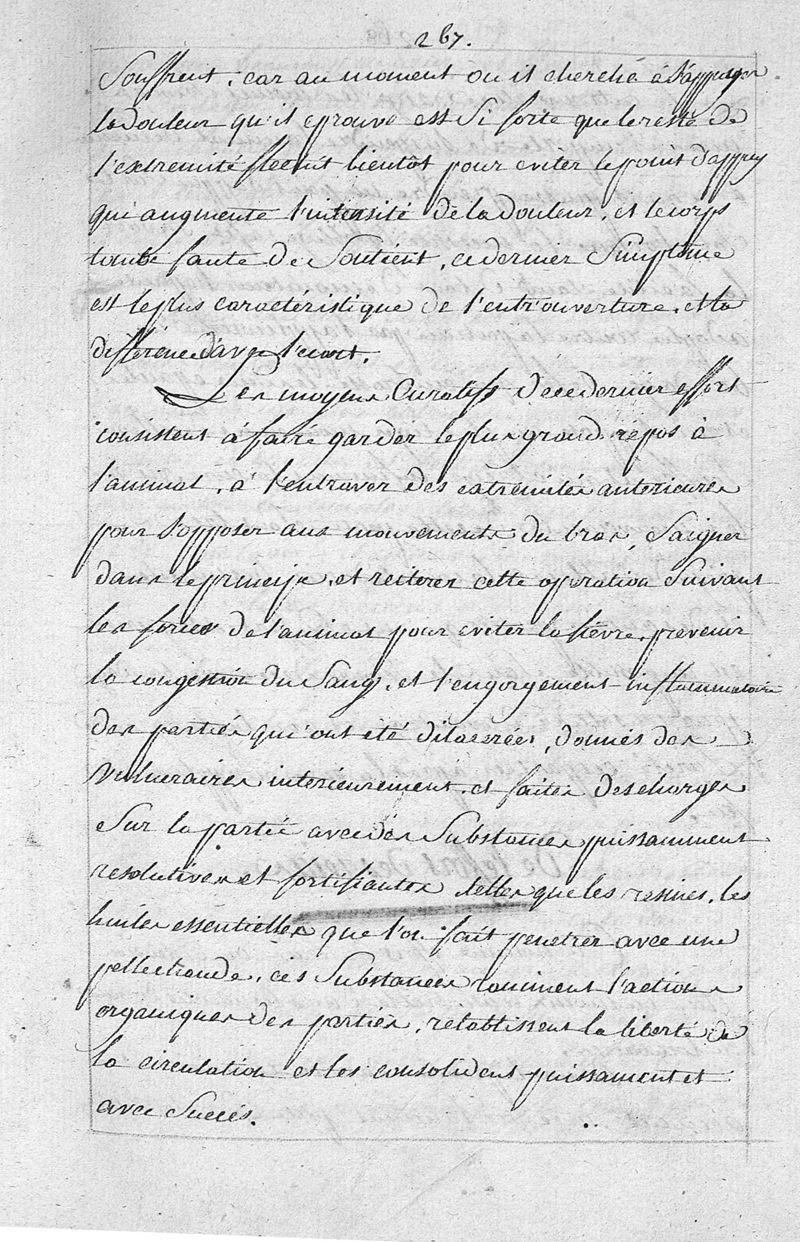 267.
Souffrent, car au moment ou il cherche à s'appuyer
la douleur qu'il eprouve est Si forte que le reste de
l'extremité flechit bientôt pour eviter le point d'appuy
qui augmente l'intensité de la douleur, et le corps
tombe faute de Soutient, ce dernier Simptome
est le plus caracteristique de l'entrouverture, et la
differencie d'avec l'ecart.
Les moyens Curatifs de ce dernier effort
consistent à faire garder le plus grand repos à
l'animal, à l'entraver des extremités anterieures
pour s'opposer aux mouvements du bras, Saigner
dans le principe, et reiterer cette operation Suivant
les forces de l'animal pour eviter la fievre, prevenir
la congestion du Sang, et l'engorgement inflammatoire
des parties qu'ont été dilacerées, donnés des
Vulneraires interieurement, et faites des charges
Sur la partie avec des Substances puissamment
resolutives et fortifiantes telles que les resines, les
huiles essentielles que l'on fait penetrer avec une
pelle chaude, ces Substances raniment l'action
organiques des parties, retablissent la liberté de
la circulation et les consolident puissament et
avec Succés.